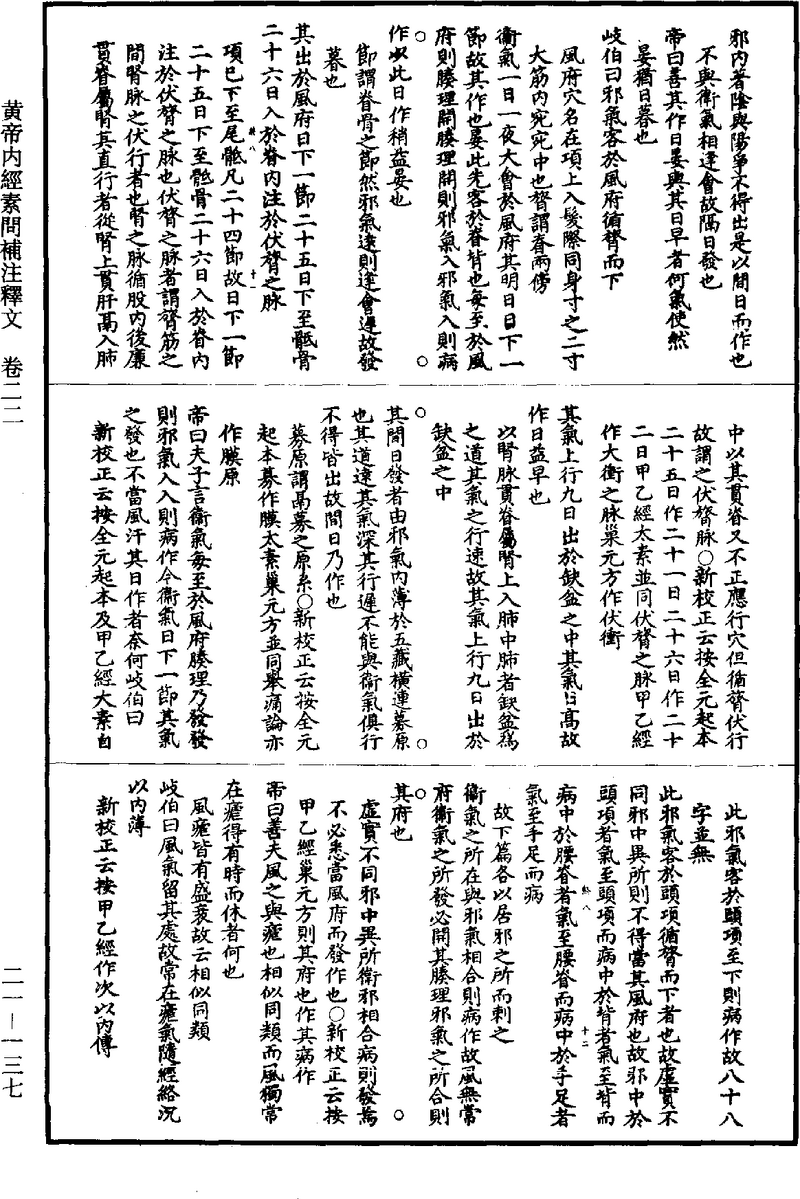 黃帝内經素問補注釋文　卷二二
二一—一三七
邪内著陰與陽爭不得出是以間日而作也
不與衛氣相逢會故隔日發也
帝曰善其作日晏與其日早者何氣使然
晏猶日暮也
岐伯曰邪氣客於風府循膂而下
風府穴名在項上入髮際同身寸之二寸
大筋内宛宛中也膂謂脊兩傍
衛氣一日一夜大會於風府其明日日下一
節故其作也晏此先客於脊背也每至於風
府則腠理開腠理開則邪氣入邪氣入則病
作以此日作稍益晏也
節謂脊骨之節然邪氣遠則逢會遲故發
暮也
其出於風府日下一節二十五日下至骶骨
二十六日入於脊内注於伏膂之脉
項已下至尾骶凡二十四節故日下一節
二十五日下至骶骨二十六日入於脊内
注於伏膂之脉也伏膂之脉者謂膂筋之
間腎脉之伏行者也腎之脉循股内後廉
貫脊屬腎其直行者從腎上貫肝鬲入肺
中以其貫脊又不正應行穴但循膂伏行
故謂之伏膂脉○新校正云按全元起本
二十五日作二十一日二十六日作二十
二日甲乙經太素並同伏膂之脉甲乙經
作大衝之脉巢元方作伏衝
其氣上行九日出於缺盆之中其氣日高故
作日益早也
以腎脉貫脊屬腎上入肺中肺者缺盆爲
之道其氣之行速故其氣上行九日出於
缺盆之中
其間日發者由邪氣内薄於五藏橫連募原
也其道遠其氣深其行遲不能與衛氣俱行
不得皆出故間日乃作也
募原謂鬲募之原系○新校正云按全元
起本募作膜太素巢元方並同舉痛論亦
作膜原
帝曰夫子言衛氣每至於風府腠理乃發發
則邪氣入入則病作今衛氣日下一節其氣
之發也不當風汗其日作者奈何岐伯曰
新校正云按全元起本及甲乙經大素自
此邪氣客於頭項至下則病作故八十八
字並無
此邪氣客於頭項循膂而下者也故虛實不
同邪中異所則不得當其風府也故邪中於
頭項者氣至頭項而病中於背者氣至背而
病中於腰脊者氣至腰脊而病中於手足者
氣至手足而病
故下篇各以居邪之所而刺之
衛氣之所在與邪氣相合則病作故風無常
府衛氣之所發必開其腠理邪氣之所合則
其府也
虛實不同邪中異所衛邪相合病則發焉
不必悉當風府而發作也○新校正云按
甲乙經巢元方則其府也作其病作
帝曰善夫風之與瘧也相似同類而風獨常
在瘧得有時而休者何也
風瘧皆有盛衰故云相似同類
岐伯曰風氣留其處故常在瘧氣隨經絡沉
以内薄
新校正云按甲乙經作次以内傳